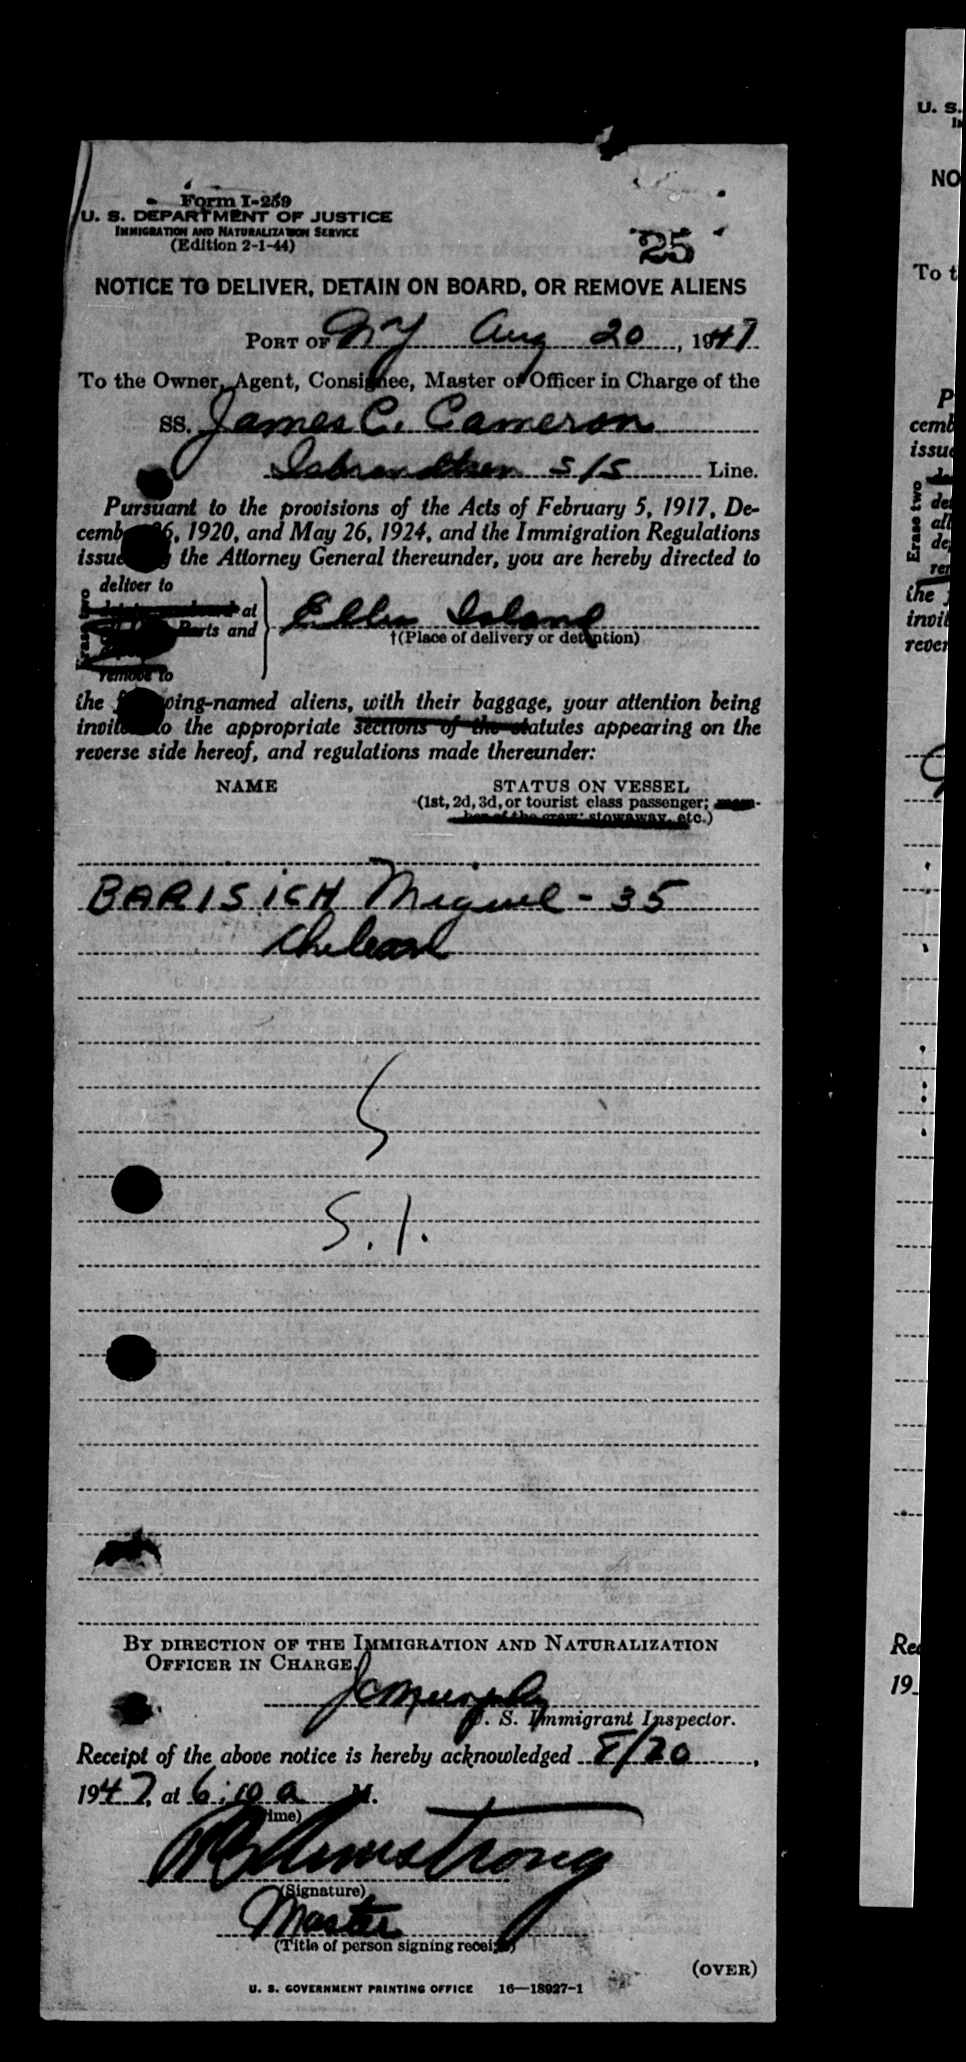 Form I-259
U. S. DEPARTMENT OF JUSTICE
IMMIGRATION AND NATURALIZATION SERVICE
(Edition 2-1-44)
25
NOTICE TO DELIVER, DETAIN ON BOARD, OR REMOVE ALIENS
PORT OF NY Aug 20, 1947
To the Owner, Agent, Consignee, Master or Officer in Charge of the
SS. James C. Cameron
Isbrandtsen S/S Line.
Pursuant to the provisions of the Acts of February 5, 1917, De-
cemb 26, 1920, and May 26, 1924, and the Immigration Regulations
issued the Attorney General thereunder, you are hereby directed to
deliver to
at
Parts and
remove to
Erase two
Ellis Island
†(Place of delivery or detention)
the following-named aliens, with their baggage, your attention being
invited to the appropriate sections of the statutes appearing on the
reverse side hereof, and regulations made thereunder:
NAME STATUS ON VESSEL
(1st, 2d, 3d, or tourist class passenger; mem-
ber of the crew; stowaway, etc.)
BARISICH Miguel - 35
Chilean
S
S. I.
BY DIRECTION OF THE IMMIGRATION AND NATURALIZATION
OFFICER IN CHARGE.
JC Murphy
U. S. Immigrant Inspector.
Receipt of the above notice is hereby acknowledged 8/20,
1947, at 6:10 a M.
(Time)
Armstrong
(Signature)
Master
(Title of person signing receipt)
(OVER)
U. S. GOVERNMENT PRINTING OFFICE 16—18927-1
U. S.
NO
To t
P
cemb
issue
Erase two
the
invit
rever
Rec
19